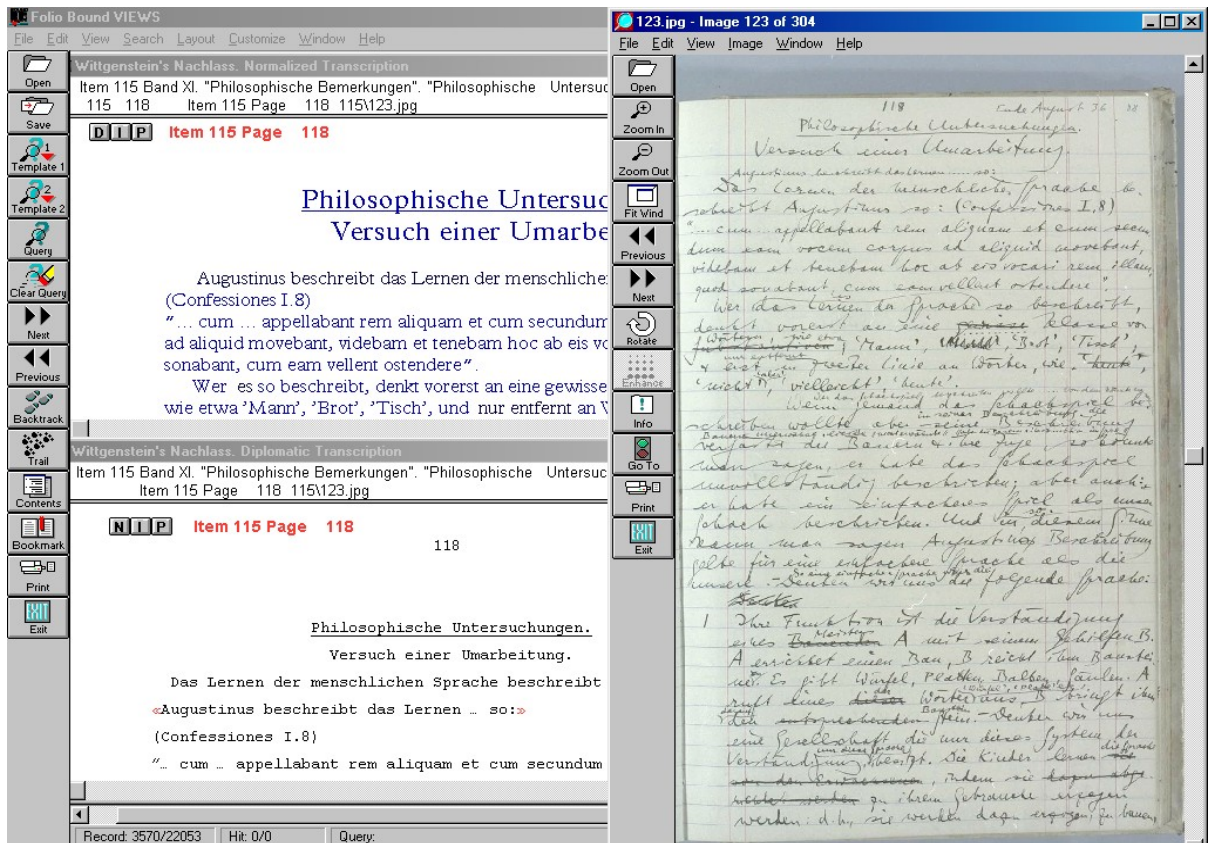 Folio Bound VIEWS
File Edit View Search Layout Customize Window Help
Open
Save
Template 1
Template 2
Query
Clear Query
Next
Previous
Backtrack
Trail
Contents
Bookmark
Print
Exit
Wittgenstein's Nachlass. Normalized Transcription
Item 115 Band XI. "Philosophische Bemerkungen". "Philosophische Untersuc
115 118 Item 115 Page 118 115\123.jpg
D I P Item 115 Page 118
Philosophische Untersuc
Versuch einer Umarbe
Augustinus beschreibt das Lernen der menschliche
(Confessiones I.8)
"... cum ... appellabant rem aliquam et cum secundum
ad aliquid movebant, videbam et tenebam hoc ab eis vo
sonabant, cum eam vellent ostendere".
Wer es so beschreibt, denkt vorerst an eine gewisse
wie etwa 'Mann', 'Brot', 'Tisch', und nur entfernt an
Wittgenstein's Nachlass. Diplomatic Transcription
Item 115 Band XI. "Philosophische Bemerkungen". "Philosophische Untersuc
Item 115 Page 118 115\123.jpg
N I P Item 115 Page 118
118
Philosophische Untersuchungen.
Versuch einer Umarbeitung.
Das Lernen der menschlichen Sprache beschreibt
«Augustinus beschreibt das Lernen … so:»
(Confessiones I.8)
"… cum … appellabant rem aliquam et cum secundum
Record: 3570/22053 Hit: 0/0 Query:
123.jpg - Image 123 of 304
File Edit View Image Window Help
Open
Zoom In
Zoom Out
Fit Wind
Previous
Next
Rotate
Enhance
Info
Go To
Print
Exit
118 Ende August 36
Philosophische Untersuchungen.
Versuch einer Umarbeitung.
Augustinus beschreibt das Lernen ..... so:
Das Lernen der menschlichen Sprache be-
schreibt Augustinus so: (Confessiones I,8)
"... cum ... appellabant rem aliquam et cum secun
dum eam vocem corpus ad aliquid movebant,
videbam et tenebam hoc ab eis vocari rem illam,
quod sonabant, cum eam vellent ostendere".
Wer das Lernen der Sprache so beschreibt,
es
denkt vorerst an eine Klasse von
Wörtern, wie etwa
'Mann', 'Brot', 'Tisch',
nur entfernt
& erst in zweiter Linie an Wörter, wie 'heute',
'nicht', 'vielleicht', 'heute'.
Wenn jemand das Schachspiel be-
schreiben wollte aber in seiner Beschreibung die
so könnte
man sagen, er habe das Schachspiel
unvollständig beschrieben; aber auch:
er habe ein einfacheres Spiel als unser
Schach beschrieben. Und in diesem Sinne
so:
kann man sagen Augustinus Beschreibung
gelte für eine einfachere Sprache als die
So eine einfache Sprache wäre die
unsere. - Denken wir uns die folgende Sprache:
1 Ihre Funktion ist die Verständigung
Meister
eines Bauenden A mit seinem Gehilfen B.
A errichtet einen Bau, B reicht ihm Baustei-
ne. Es gibt Würfel, Platten, Balken, Säulen. A
der
ruft eines dieser Wörter aus, B bringt ihm
Baustein
den entsprechenden Stein. - Denken wir uns
eine Gesellschaft die nur dieses System der
Verständigung besitzt. Die Kinder lernen
die Sprache
von den Erwachsenen, indem sie dazu abge-
richtet werden zu ihrem Gebrauche erzogen
werden: d.h., sie werden dazu erzogen, zu bauen,